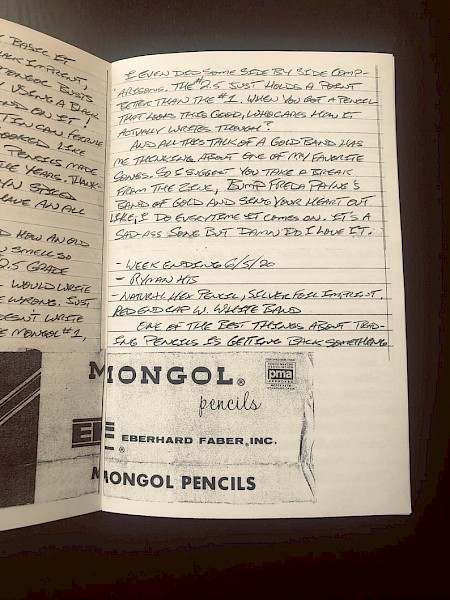 Y BASIC IT
BLACK IMPRINT,
MONGOL BUSTS
Y USING A BLACK
AND ON IT!
TIN CAN FERRULE
LIKE
PENCILS MADE
THE YEARS. THANK-
SPEED
HAVE AN ALL
D HOW AN OLD
N SMELL SO
2.5 GRADE
WOULD WRITE
E WRONG. JUST
DOESN'T WRITE
E MONGOL #1,
I EVEN DID SOME SIDE BY SIDE COMP-
ARISONS. THE #2.5 JUST HOLDS A POINT
BETER THAN THE #1. WHEN YOU GOT A PENCIL
THAT LOOKS THIS GOOD, WHO CARES HOW IT
ACTUALLY WRITES THOUGH?
AND ALL THIS TALK OF A GOLD BAND HAS
ME THINKING ABOUT ONE OF MY FAVORITE
SONGS. SO I SUGGEST YOU TAKE A BREAK
FROM THE ZINE, BUMP FREDA PAYNE'S
BAND OF GOLD AND SING YOUR HEART OUT
LIKE I DO EVERYTIME IT COMES ON. IT'S A
SAD-ASS SONG BUT DAMN DO I LOVE IT.
- WEEK ENDING 6/5/20
- RYMAN HB
- NATURAL HEX PENCIL, SILVER FOIL IMPRINT,
RED END CAP W. WHITE BAND
ONE OF THE BEST THINGS ABOUT TRAD-
ING PENCILS IS GETTING BACK SOMETHING
MONGOL®
pencils
pma
EF® EBERHARD FABER, INC.
MONGOL PENCILS